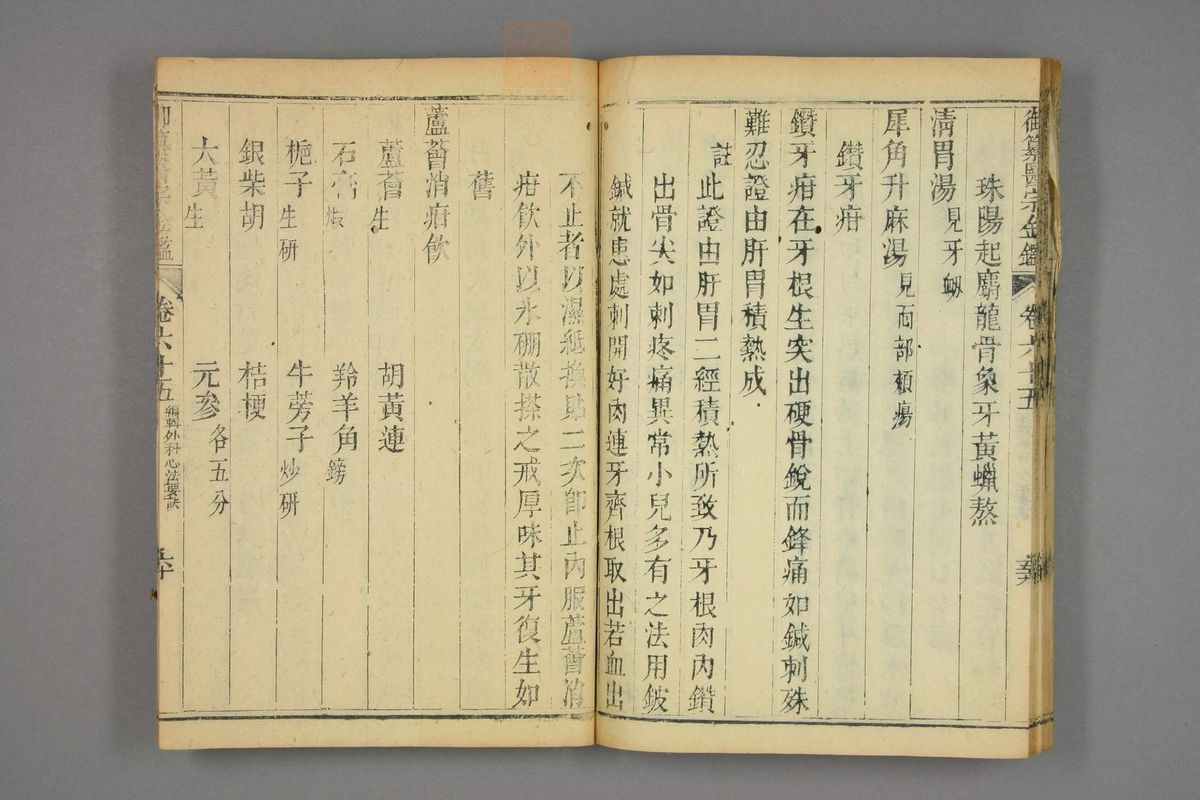 御纂醫宗金鑑 卷六十五
珠陽起麝龍骨象牙黃蠟熬
清胃湯見牙衂
犀角升麻湯見面部頰瘍
鑽牙疳
鑽牙疳在牙根生突出硬骨銳而鋒痛如鍼刺殊
難忍證由肝胃積熱成
註此證由肝胃二經積熱所致乃牙根肉內鑽
出骨尖如刺疼痛異常小兒多有之法用鈹
鍼就患處刺開好肉連牙齊根取出若血出
不止者以濕紙換貼二次即止內服蘆薈消
疳飲外以氷硼散搽之戒厚味其牙復生如
舊
蘆薈消疳飲
蘆薈生 胡黃連
石膏煅 羚羊角鎊
梔子生研 牛蒡子炒研
銀柴胡 桔梗
大黃生 元參各五分
卷六十五 編輯外科心法要訣 六十